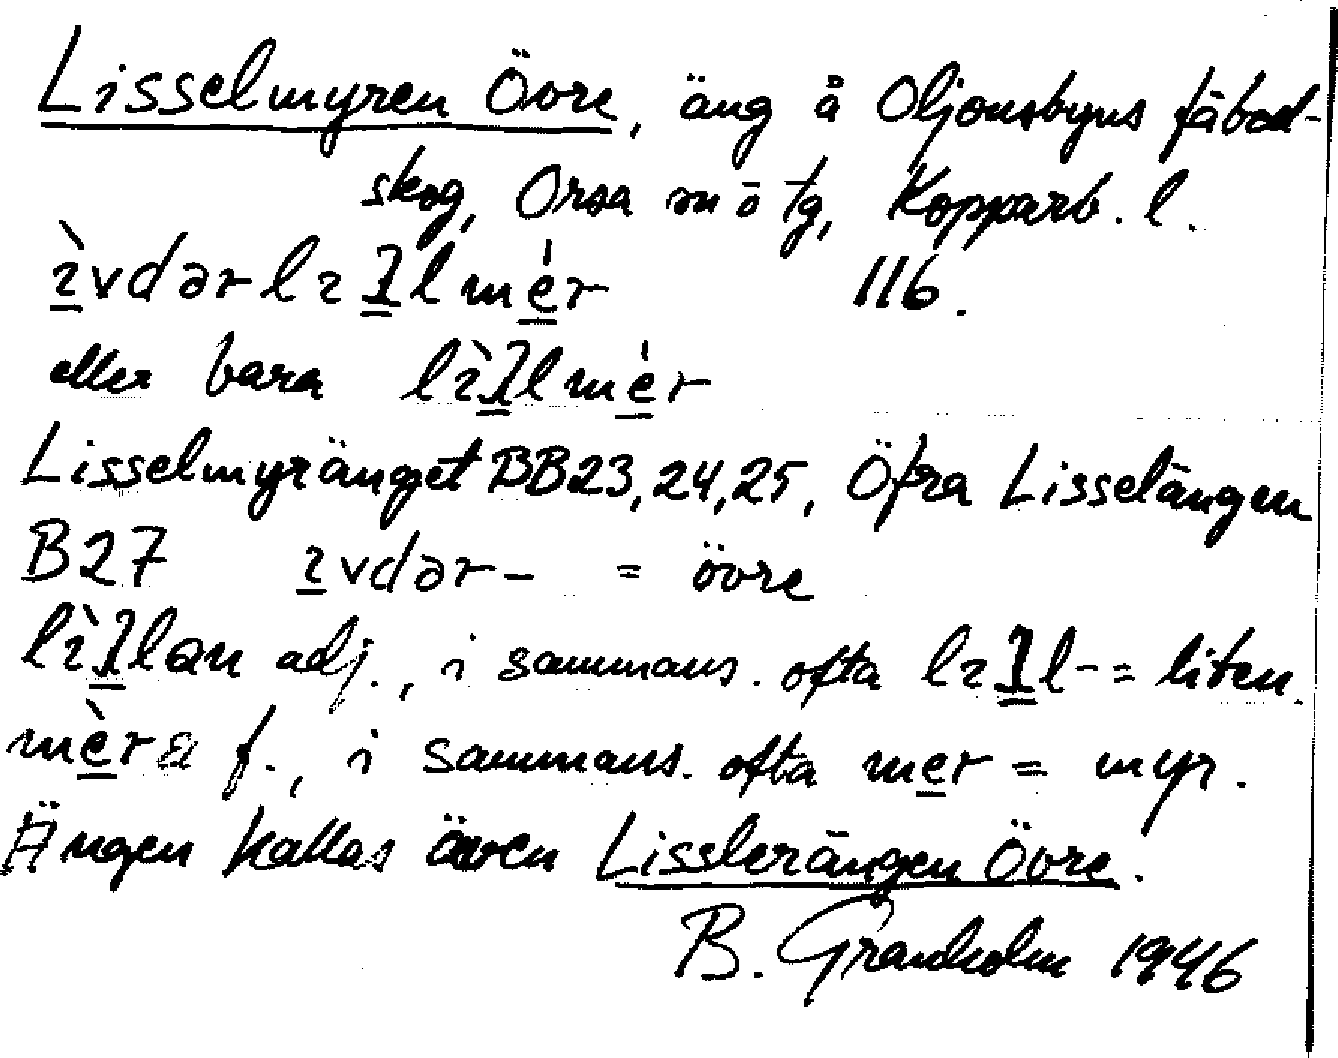 Lisselmyren Övre, äng å Oljonsbyns fäbod-
skog, Orsa sn o tg, Kopparb. l.
ı̀vdərlıſlmér 116.
eller bara lı̀ſlmér
Lisselmyränget BB23,24,25, Öfra Lisselängen
B27 ıvdər- = övre
lı̀ſlan adj., i sammans. ofta lıſl- = liten.
mèra f., i sammans. ofta mer = myr.
Ängen kallas även Lisslerängen Övre.
B. Granholm 1946